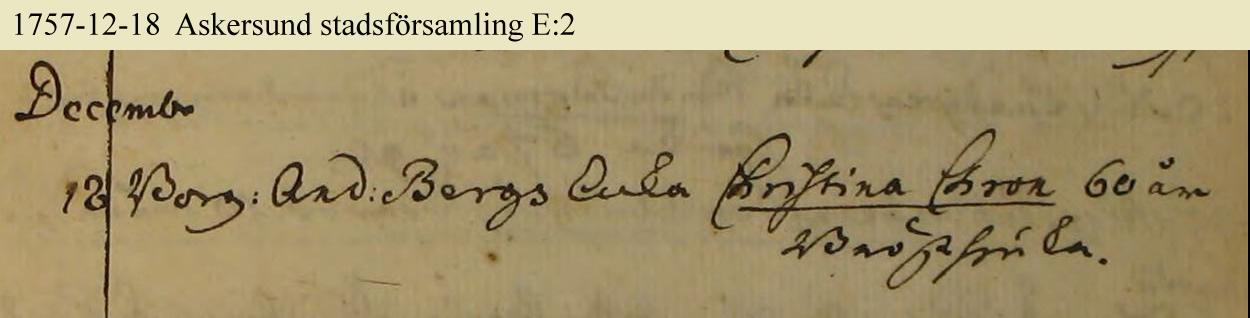 1757-12-18 Askersund stadsförsamling E:2
Decembr
18 Borg: And: Bergs Enka Christina Chron 60 åhr
Bröstsiuka.